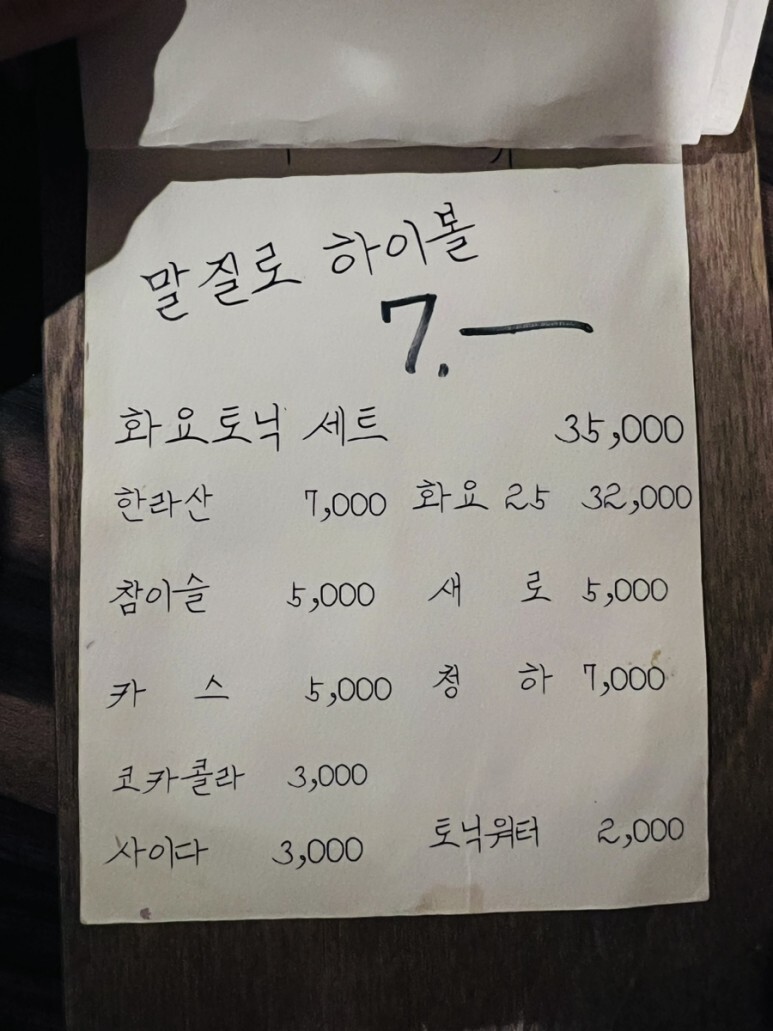 말질로 하이볼
7.—
화요토닉 세트 35,000
한라산 7,000 화요 25 32,000
참이슬 5,000 새 로 5,000
카 스 5,000 청 하 7,000
코카콜라 3,000
사이다 3,000 토닉워터 2,000